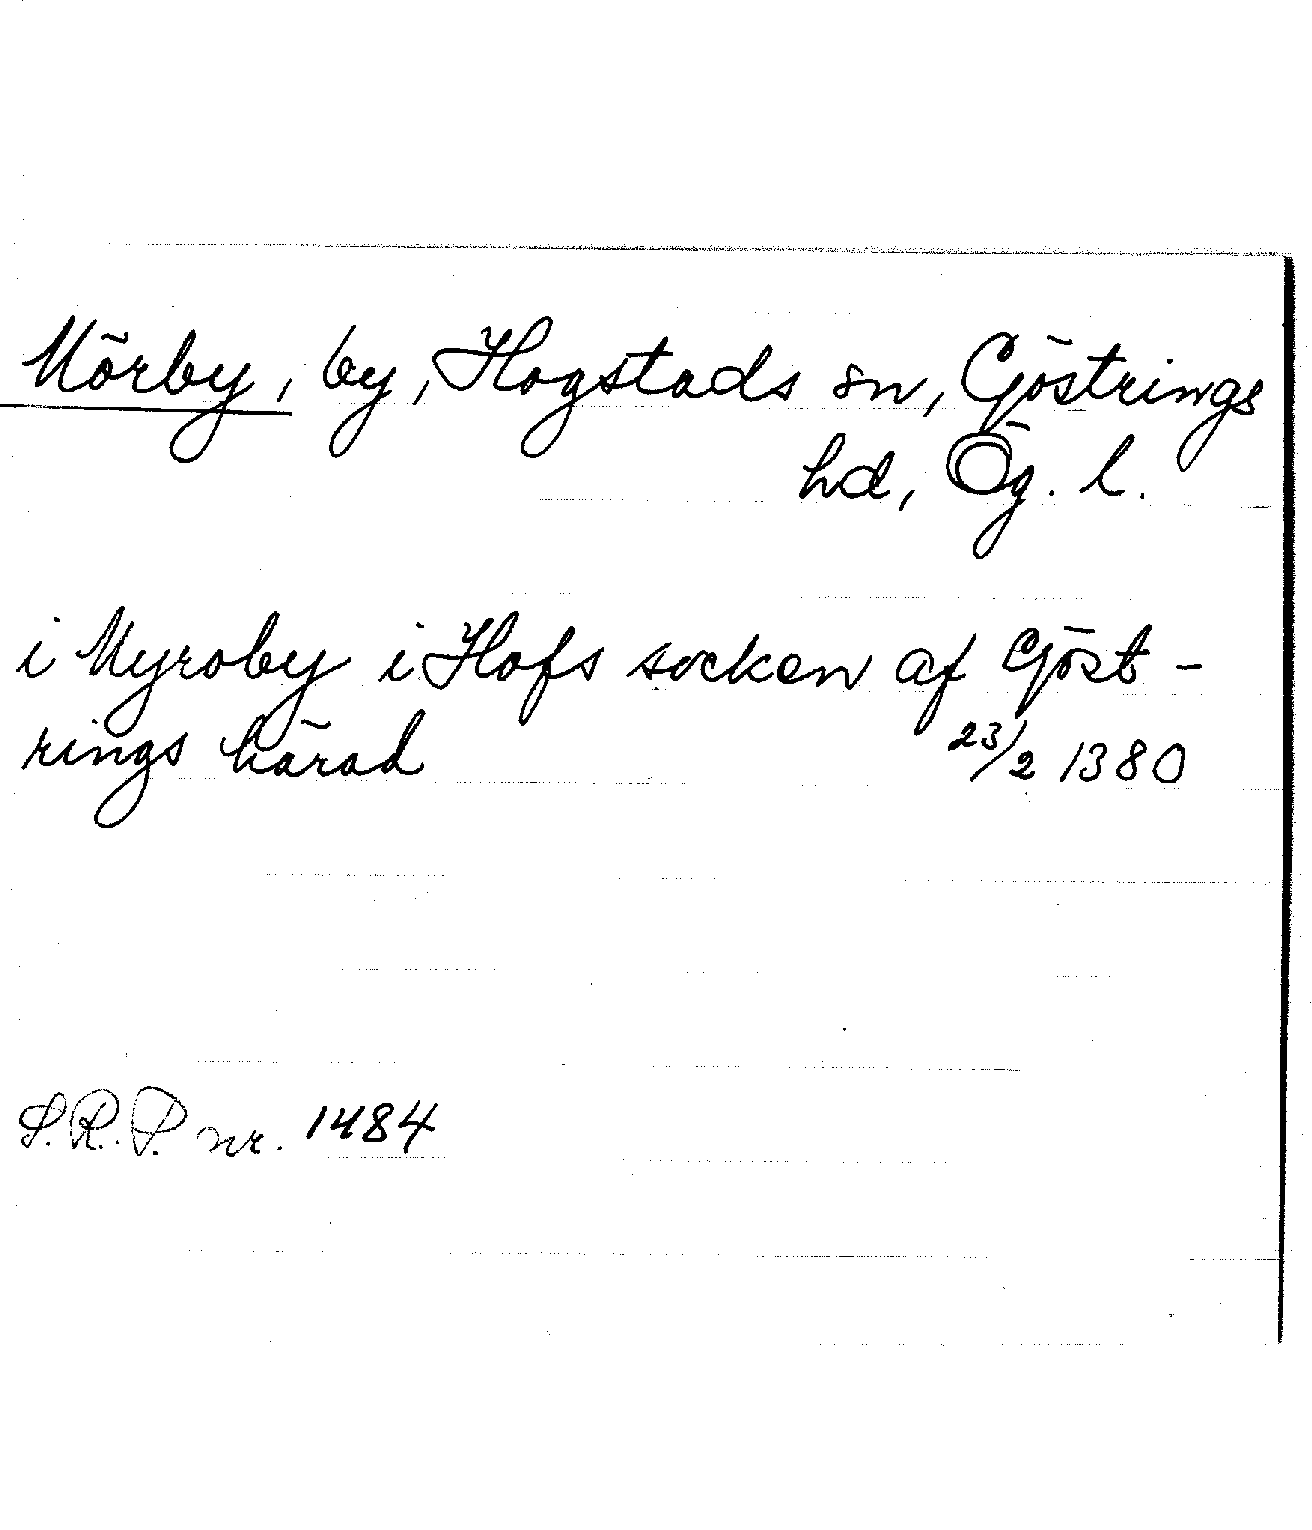 Mörby, by, Hogstads sn, Göstrings
hd, Ög. l.
i Myroby i Hofs socken af Göst-
rings härad 23/2 1380
S.R.P. nr. 1484